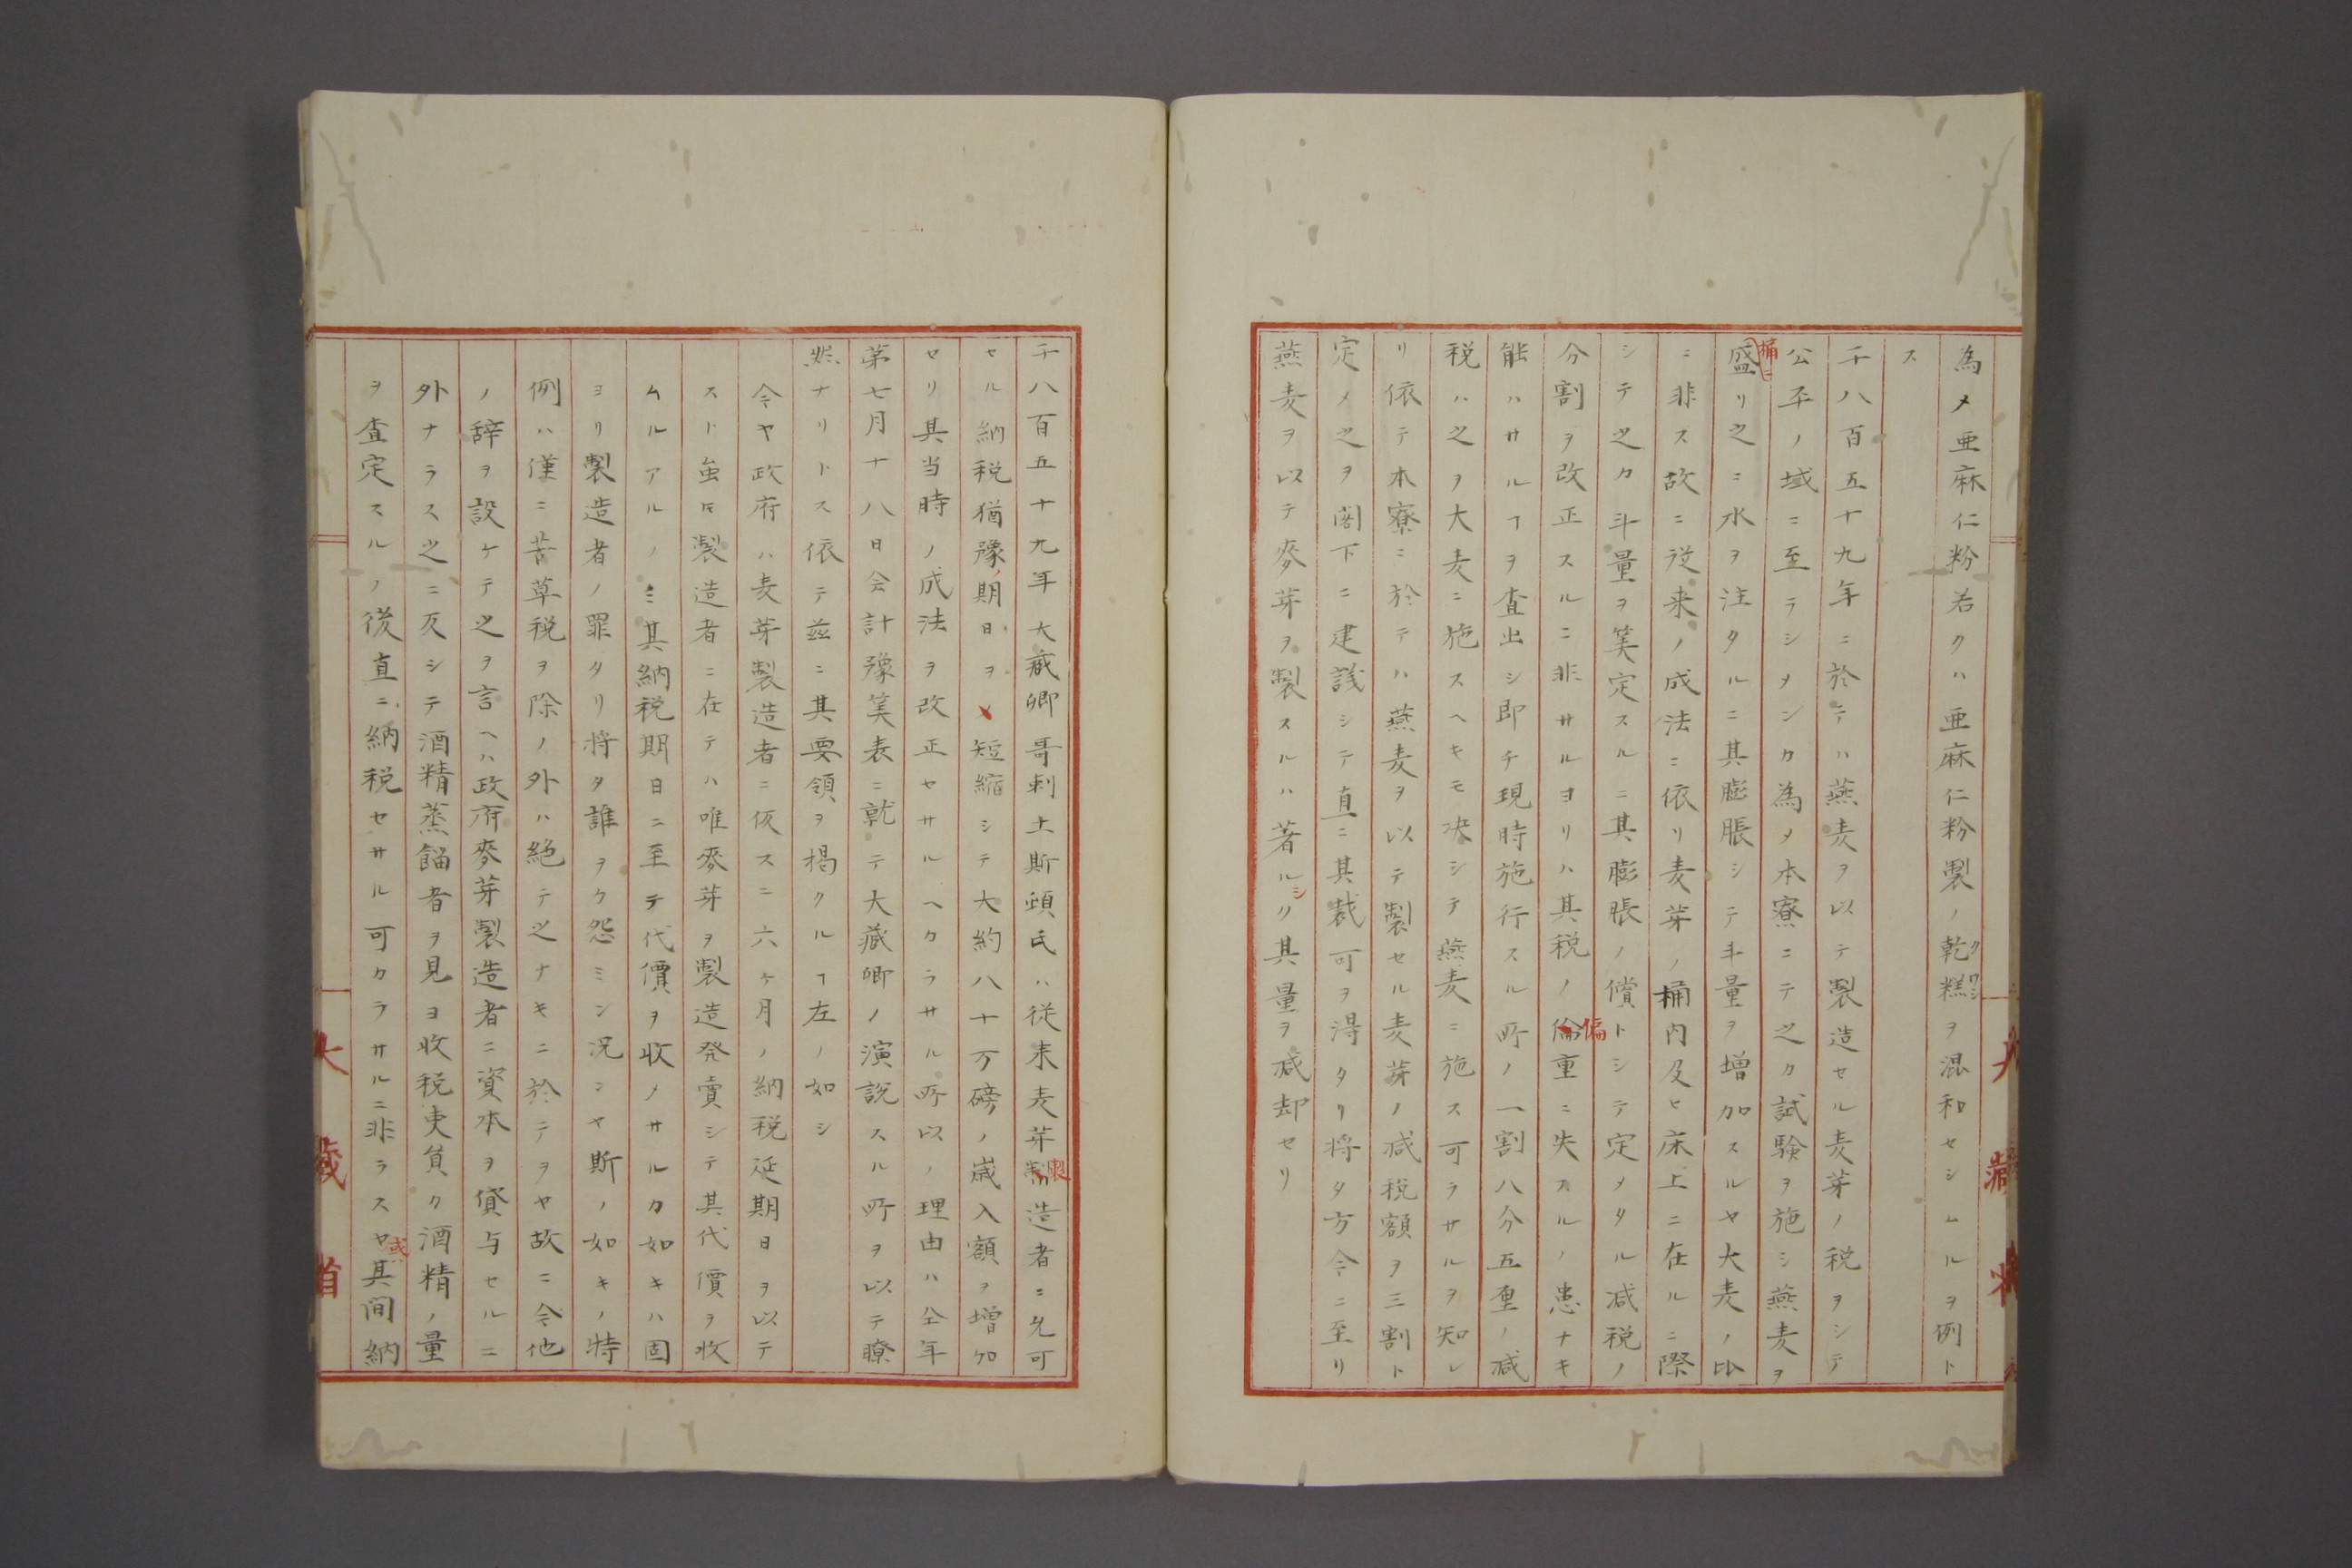 為メ亜麻仁粉若クハ亜麻仁粉製ノ乾糕ヲ混和セシムルヲ例ト
クワシ
ス
千八百五十九年ニ於テハ燕麦ヲ以テ製造セル麦芽ノ税ヲシテ
公平ノ域ニ至ラシメンカ為メ本寮ニテ之カ試験ヲ施シ燕麦ヲ
桶ニ
盛リ之ニ水ヲ注タルニ其膨脹シテ斗量ヲ増加スルヤ大麦ノ比
ニ非ス故ニ従来ノ成法ニ依リ麦芽ノ桶内及ヒ床上ニ在ルニ際
シテ之カ斗量ヲ筭定スルニ其膨脹ノ償トシテ定メタル减税ノ
偏
分割ヲ改正スルニ非サルヨリハ其税ノ倫重ニ失スルノ患ナキ
能ハサルヿヲ査出シ即チ現時施行スル所ノ一割八分五厘ノ减
税ハ之ヲ大麦ニ施スヘキモ决シテ燕麦ニ施ス可ラサルヲ知レ
リ依テ本寮ニ於テハ燕麦ヲ以テ製セル麦芽ノ减税額ヲ三割ト
定メ之ヲ閣下ニ建議シテ直ニ其裁可ヲ得タリ将タ方今ニ至リ
燕麦ヲ以テ麥芽ヲ製スルハ著ルク其量ヲ减却セリ
シ
大藏省
千八百五十九年大藏卿哥剌士斯頓氏ハ従来麦芽製造者ニ允可
製
セル納税猶豫期日ヲメ短縮シテ大約八十万磅ノ歳入額ヲ増加
セリ其当時ノ成法ヲ改正セサルヘカラサル所以ノ理由ハ仝年
第七月十八日会計豫筭表ニ就テ大藏卿ノ演説スル所ヲ以テ瞭
然ナリトス依テ茲ニ其要領ヲ掲クルヿ左ノ如シ
今ヤ政府ハ麦芽製造者ニ仮スニ六ヶ月ノ納税延期日ヲ以テ
スト虽𪜈製造者ニ在テハ唯麥芽ヲ製造発賣シテ其代價ヲ收
ムルアルノミ其納税期日ニ至テ代價ヲ收メサルカ如キハ固
ヨリ製造者ノ罪タリ将タ誰ヲカ怨ミン况ンヤ斯ノ如キノ特
例ハ僅ニ苦草税ヲ除ノ外ハ絶テ之ナキニ於テヲヤ故ニ令他
ノ辞ヲ設ケテ之ヲ言ヘハ政府麥芽製造者ニ資本ヲ貸与セルニ
外ナラス之ニ反シテ酒精蒸餾者ヲ見ヨ收税吏負ク酒精ノ量
ヲ査定スルノ後直ニ納税セサル可カラサルニ非ラスヤ其間納
或
大藏省